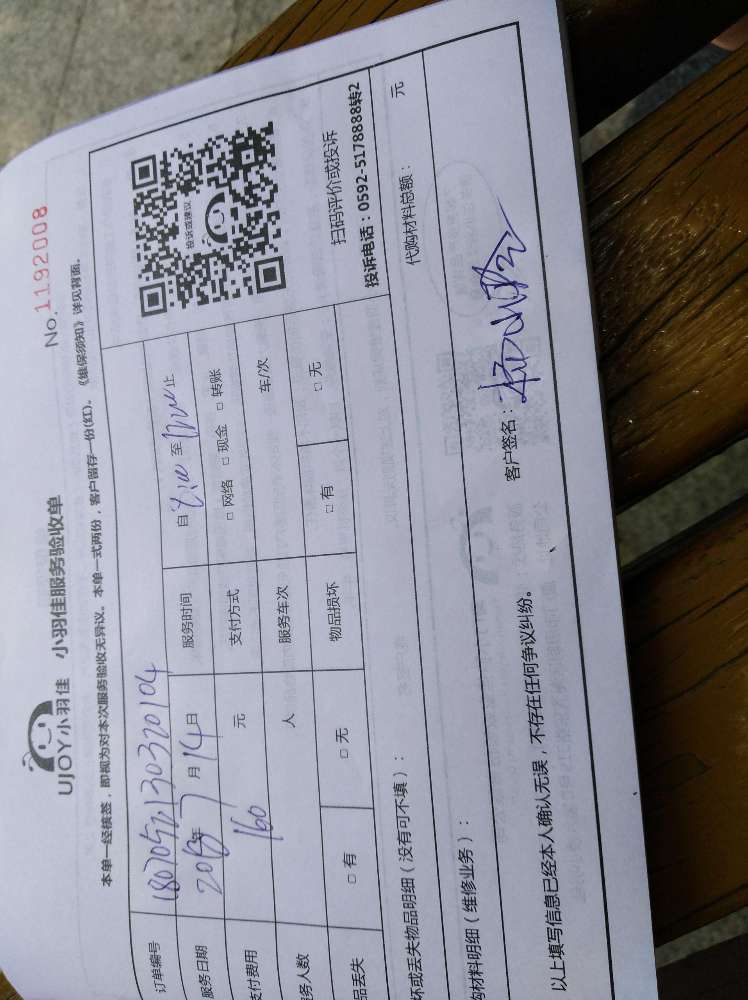 UJOY小羽佳 小羽佳服务验收单
No.1192008
本单一经核签，即视为对本次服务验收无异议。本单一式两份，客户留存一份(红)。《维保须知》详见背面。
订单编号 1807052130320104 服务时间 自 至 止
服务日期 2018年7月14日 支付方式 □ 网络 □ 现金 □ 转账
支付费用 160 元 服务车次 车/次
务人数 人 物品损坏 □ 有 □ 无
品丢失 □ 有 □ 无
投诉或建议
扫码评价或投诉
投诉电话：0592-5178888转2
坏或丢失物品明细（没有可不填）：
代购材料总额： 元
购材料明细（维修业务）：
以上填写信息已经本人确认无误，不存在任何争议纠纷。
客户签名：